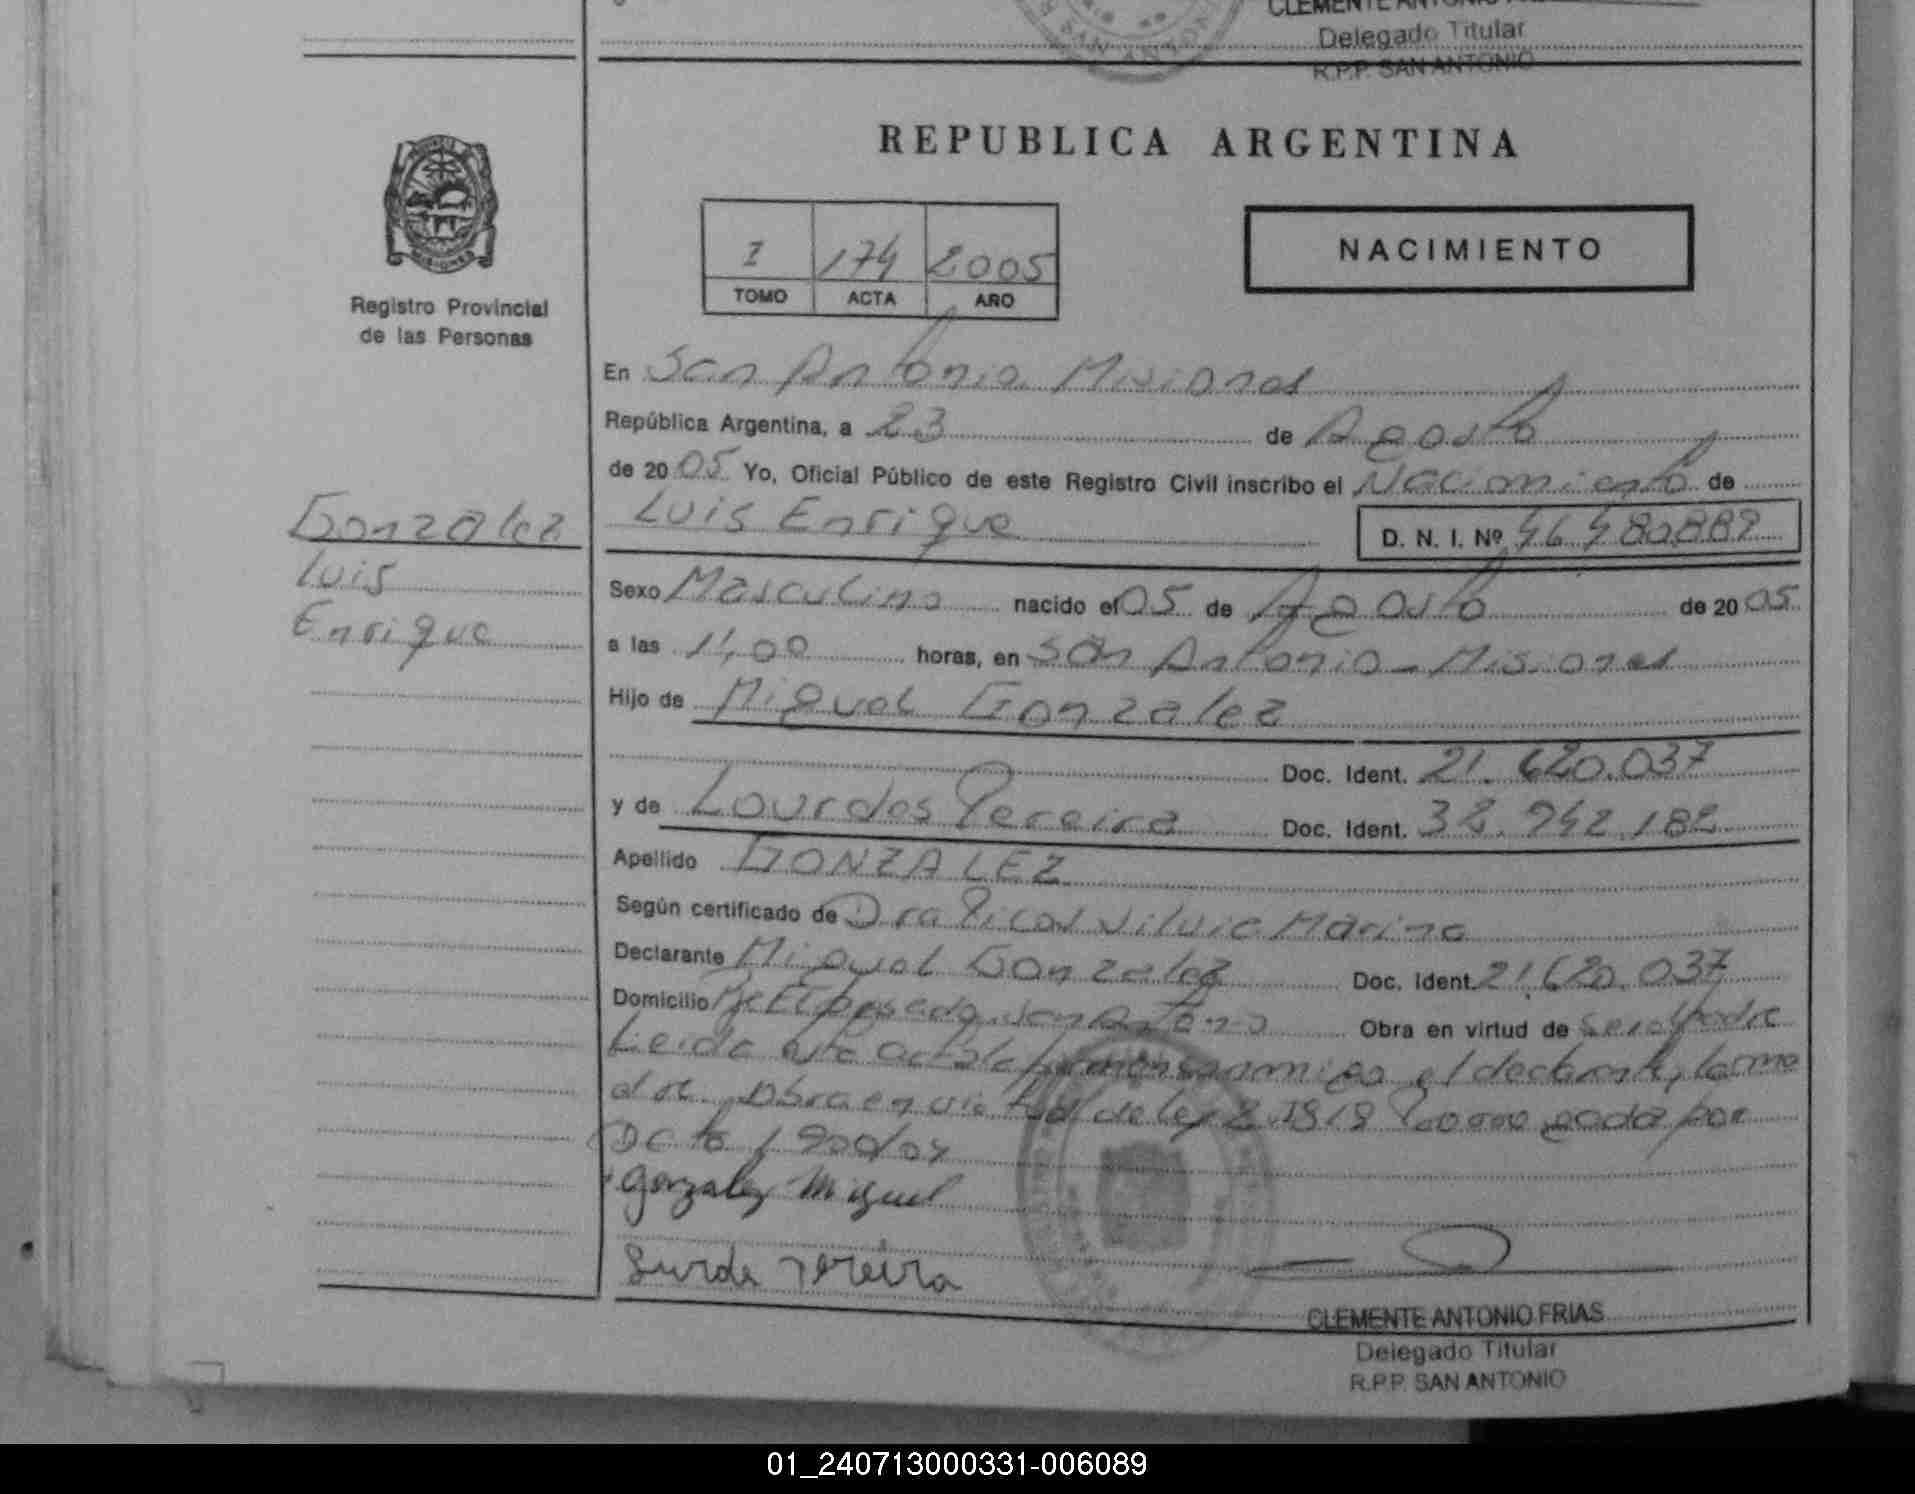 CLEMENTE ANTONIO
Delegado Titular
R.P.P. SAN ANTONIO
REPUBLICA ARGENTINA
MISIONES
Registro Provincial
de las Personas
I 174 2005
TOMO ACTA AÑO
NACIMIENTO
En San Antonio Misiones
República Argentina, a 23 de Agosto
de 2005 Yo, Oficial Público de este Registro Civil inscribo el Nacimiento de
Luis Enrique D. N. I. Nº 46.480.882
Gonzalez
Luis
Enrique
Sexo Masculino nacido el 05 de Agosto de 2005
a las 11,00 horas, en San Antonio - Misiones
Hijo de Miguel Gonzalez
Doc. Ident. 21.620.037
y de Lourdes Pereira Doc. Ident. 38.942.182
Apellido GONZALEZ
Según certificado de Dra Silvia Marina
Declarante Miguel Gonzalez Doc. Ident. 21.620.037
Domicilio San Antonio Obra en virtud de ser el padre
Leida el declarante,
Obra en virtud de ley por
Gonzalez Miguel
Lurde Pereira
CLEMENTE ANTONIO FRIAS
Delegado Titular
R.P.P. SAN ANTONIO
01_240713000331-006089